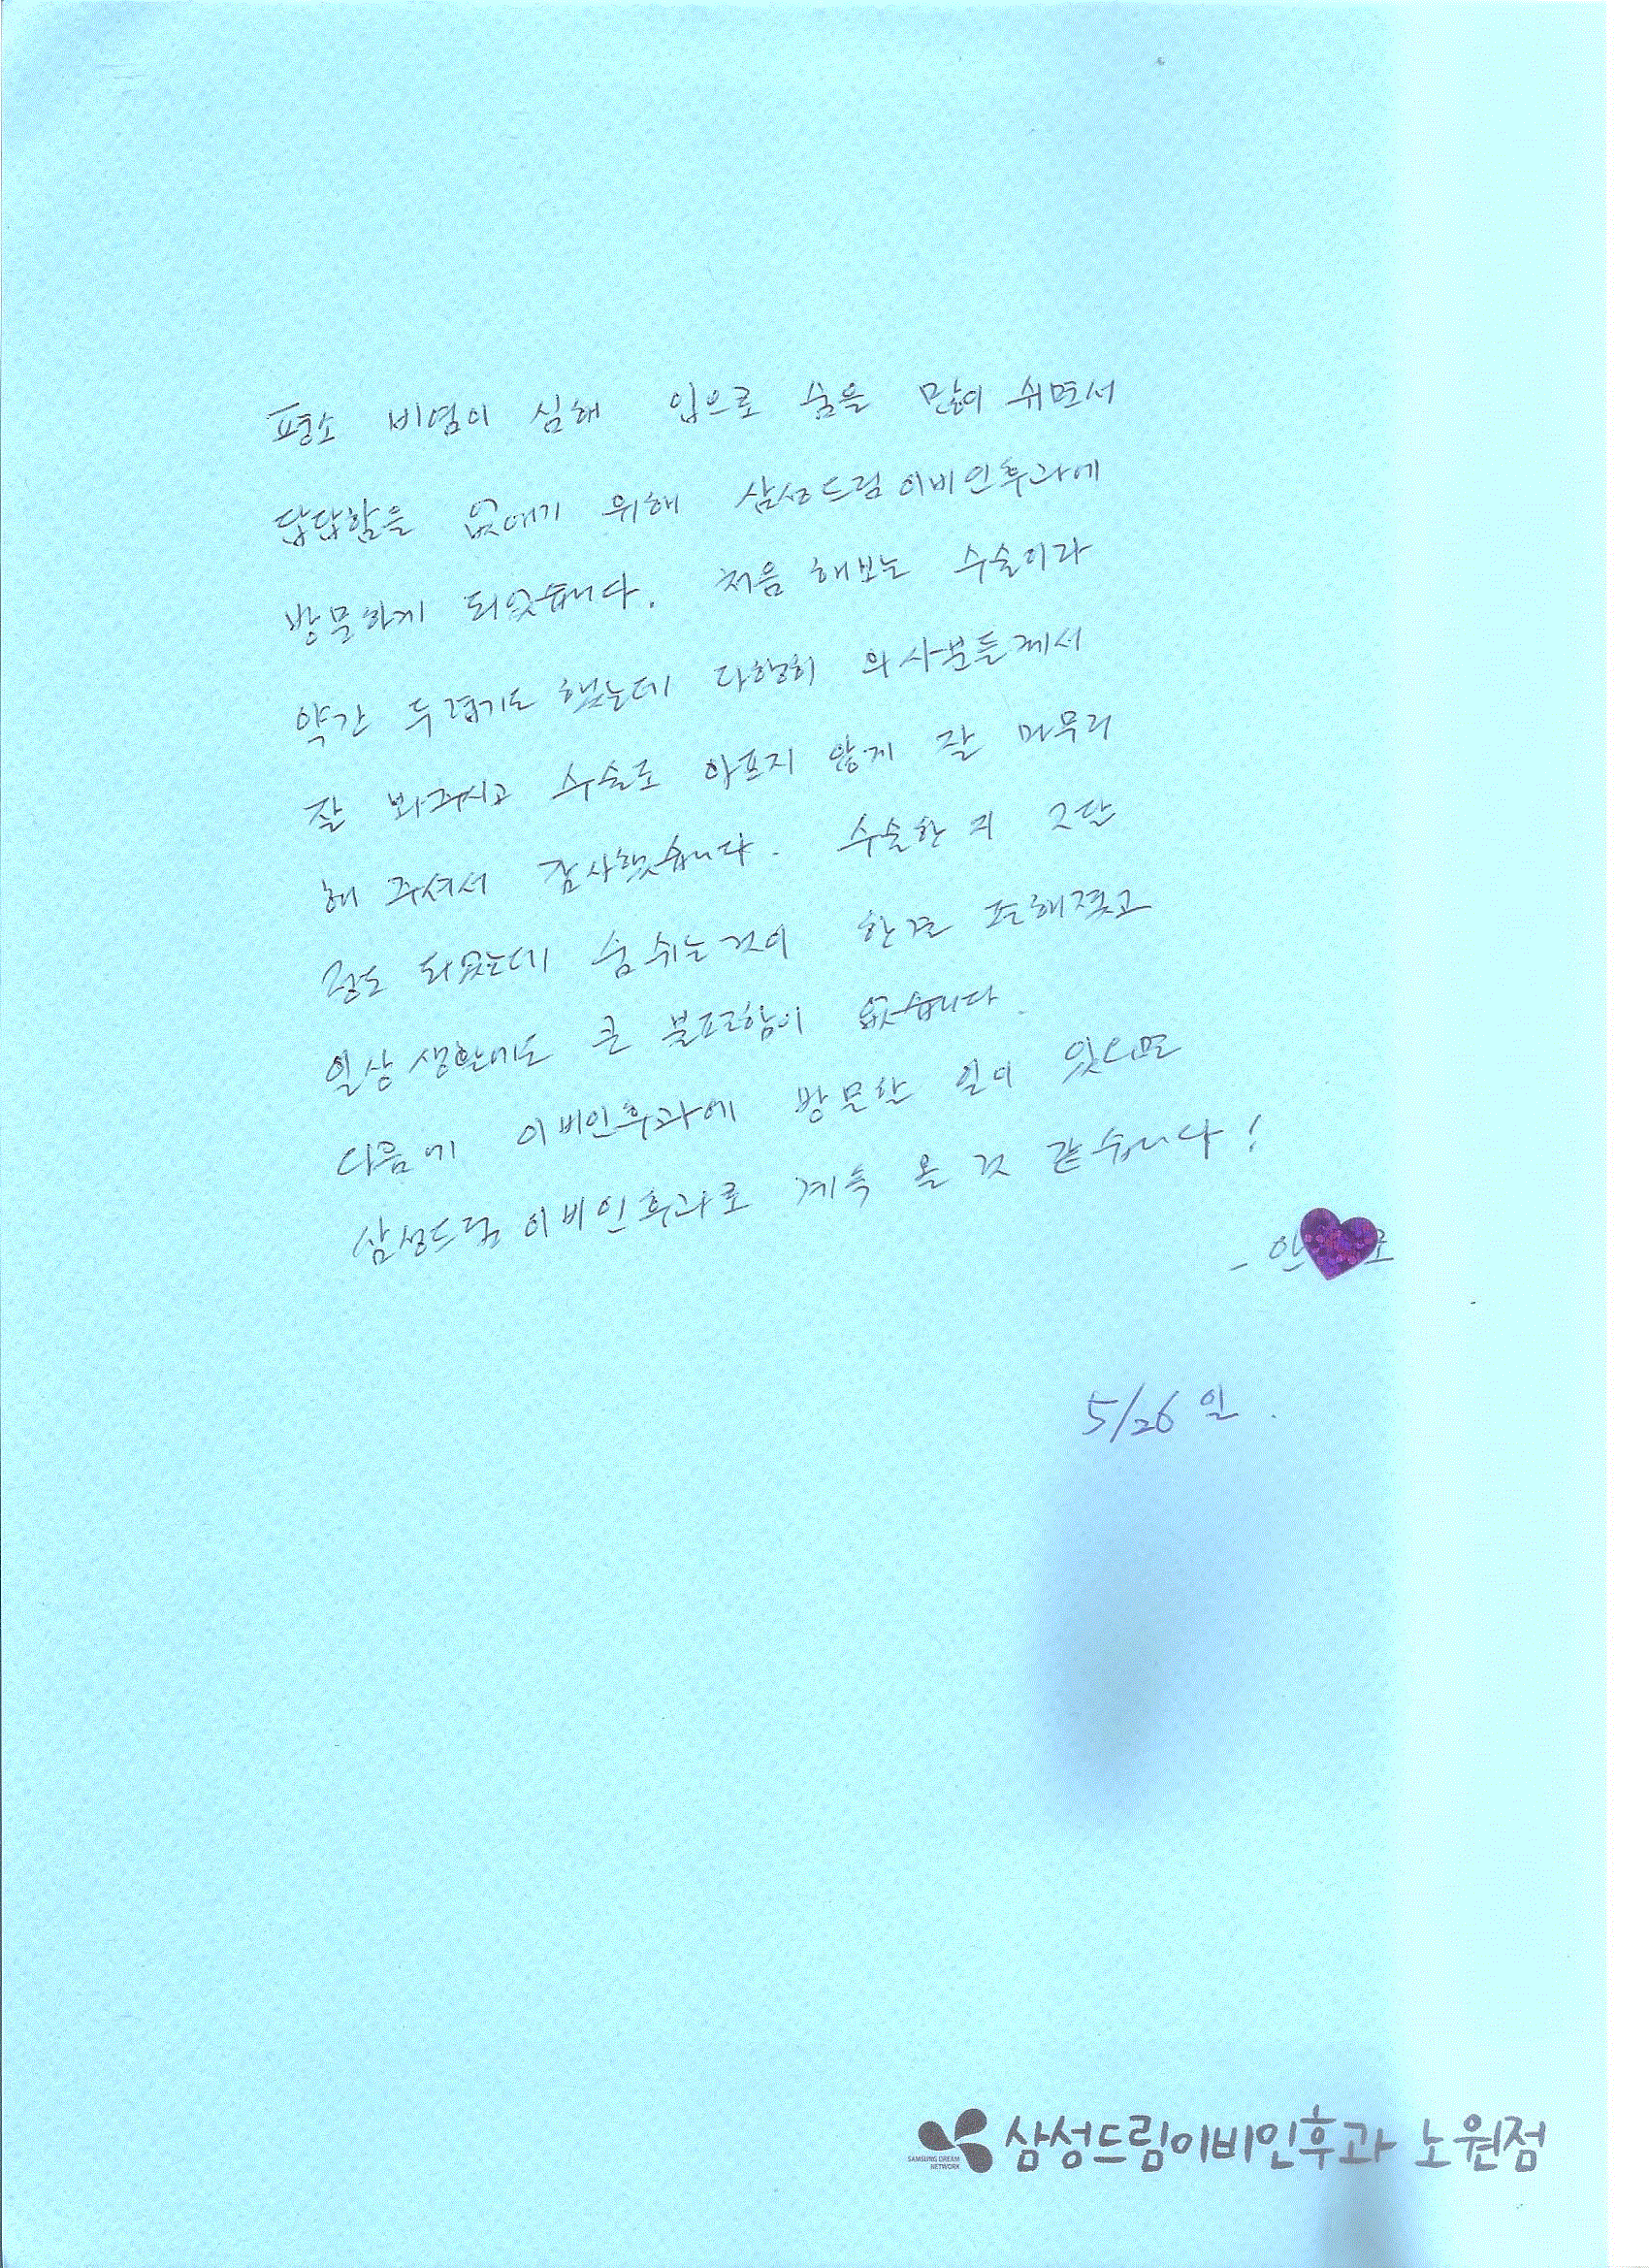 평소 비염이 심해 입으로 숨을 많이 쉬면서
답답함을 없애기 위해 삼성드림이비인후과에
방문하게 되었습니다. 처음 해보는 수술이라
약간 두렵기도 했는데 다행히 의사분들께서
잘 봐주시고 수술로 아프지 않게 잘 마무리
해 주셔서 감사했습니다. 수술한 지 2달
정도 되었는데 숨쉬는것이 한결 편해졌고
일상생활에도 큰 불편함이 없습니다.
다음에 이비인후과에 방문할 일이 있으면
삼성드림이비인후과로 계속 올 것 같습니다!
- 안
5/26일.
삼성드림이비인후과 노원점
SAMSUNG DREAM
NETWORK